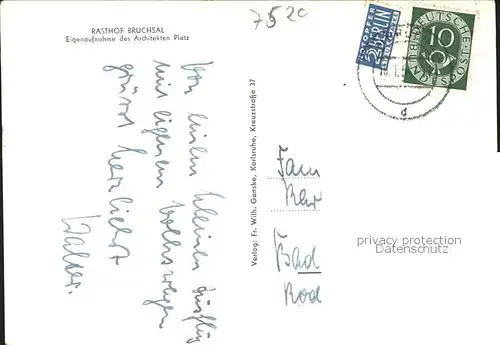 RASTHOF BRUCHSAL
Eigenaufnahme des Architekten Platz
7520
Von einem kleinen Ausflug
mit eigenem Volkswagen
grüsst herzlichst
Walter.
Verlag: Fr. Wilh. Ganske, Karlsruhe, Kreuzstraße 37
NOTOPFER
2 BERLIN
STEUERMARKE
DEUTSCHE
BUNDESPOST
10
d
Fam
Bad
privacy protection
Datenschutz